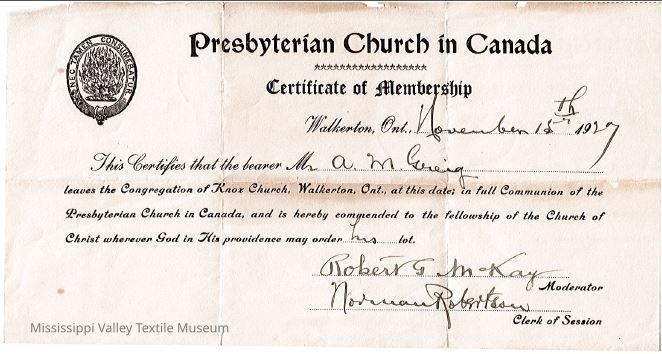 NEC TAMEN CONSUMEBATUR
Presbyterian Church in Canada
Certificate of Membership
Walkerton, Ont., November 15th 1927
This Certifies that the bearer Mr A. M. Greig
leaves the Congregation of Knox Church, Walkerton, Ont., at this date; in full Communion of the
Presbyterian Church in Canada, and is hereby commended to the fellowship of the Church of
Christ wherever God in His providence may order his lot.
Robert G McKay
Moderator
Norman Robertson
Clerk of Session
Mississippi Valley Textile Museum